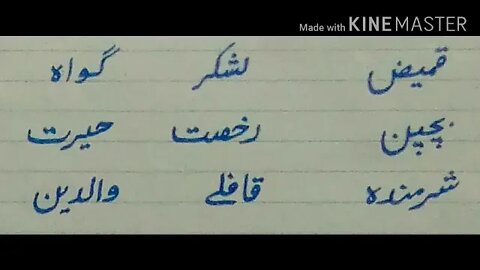 Made with KINEMASTER
قمیض لشکر گواہ
بچپن رخصت حیرت
شرمندہ قافلے والدین